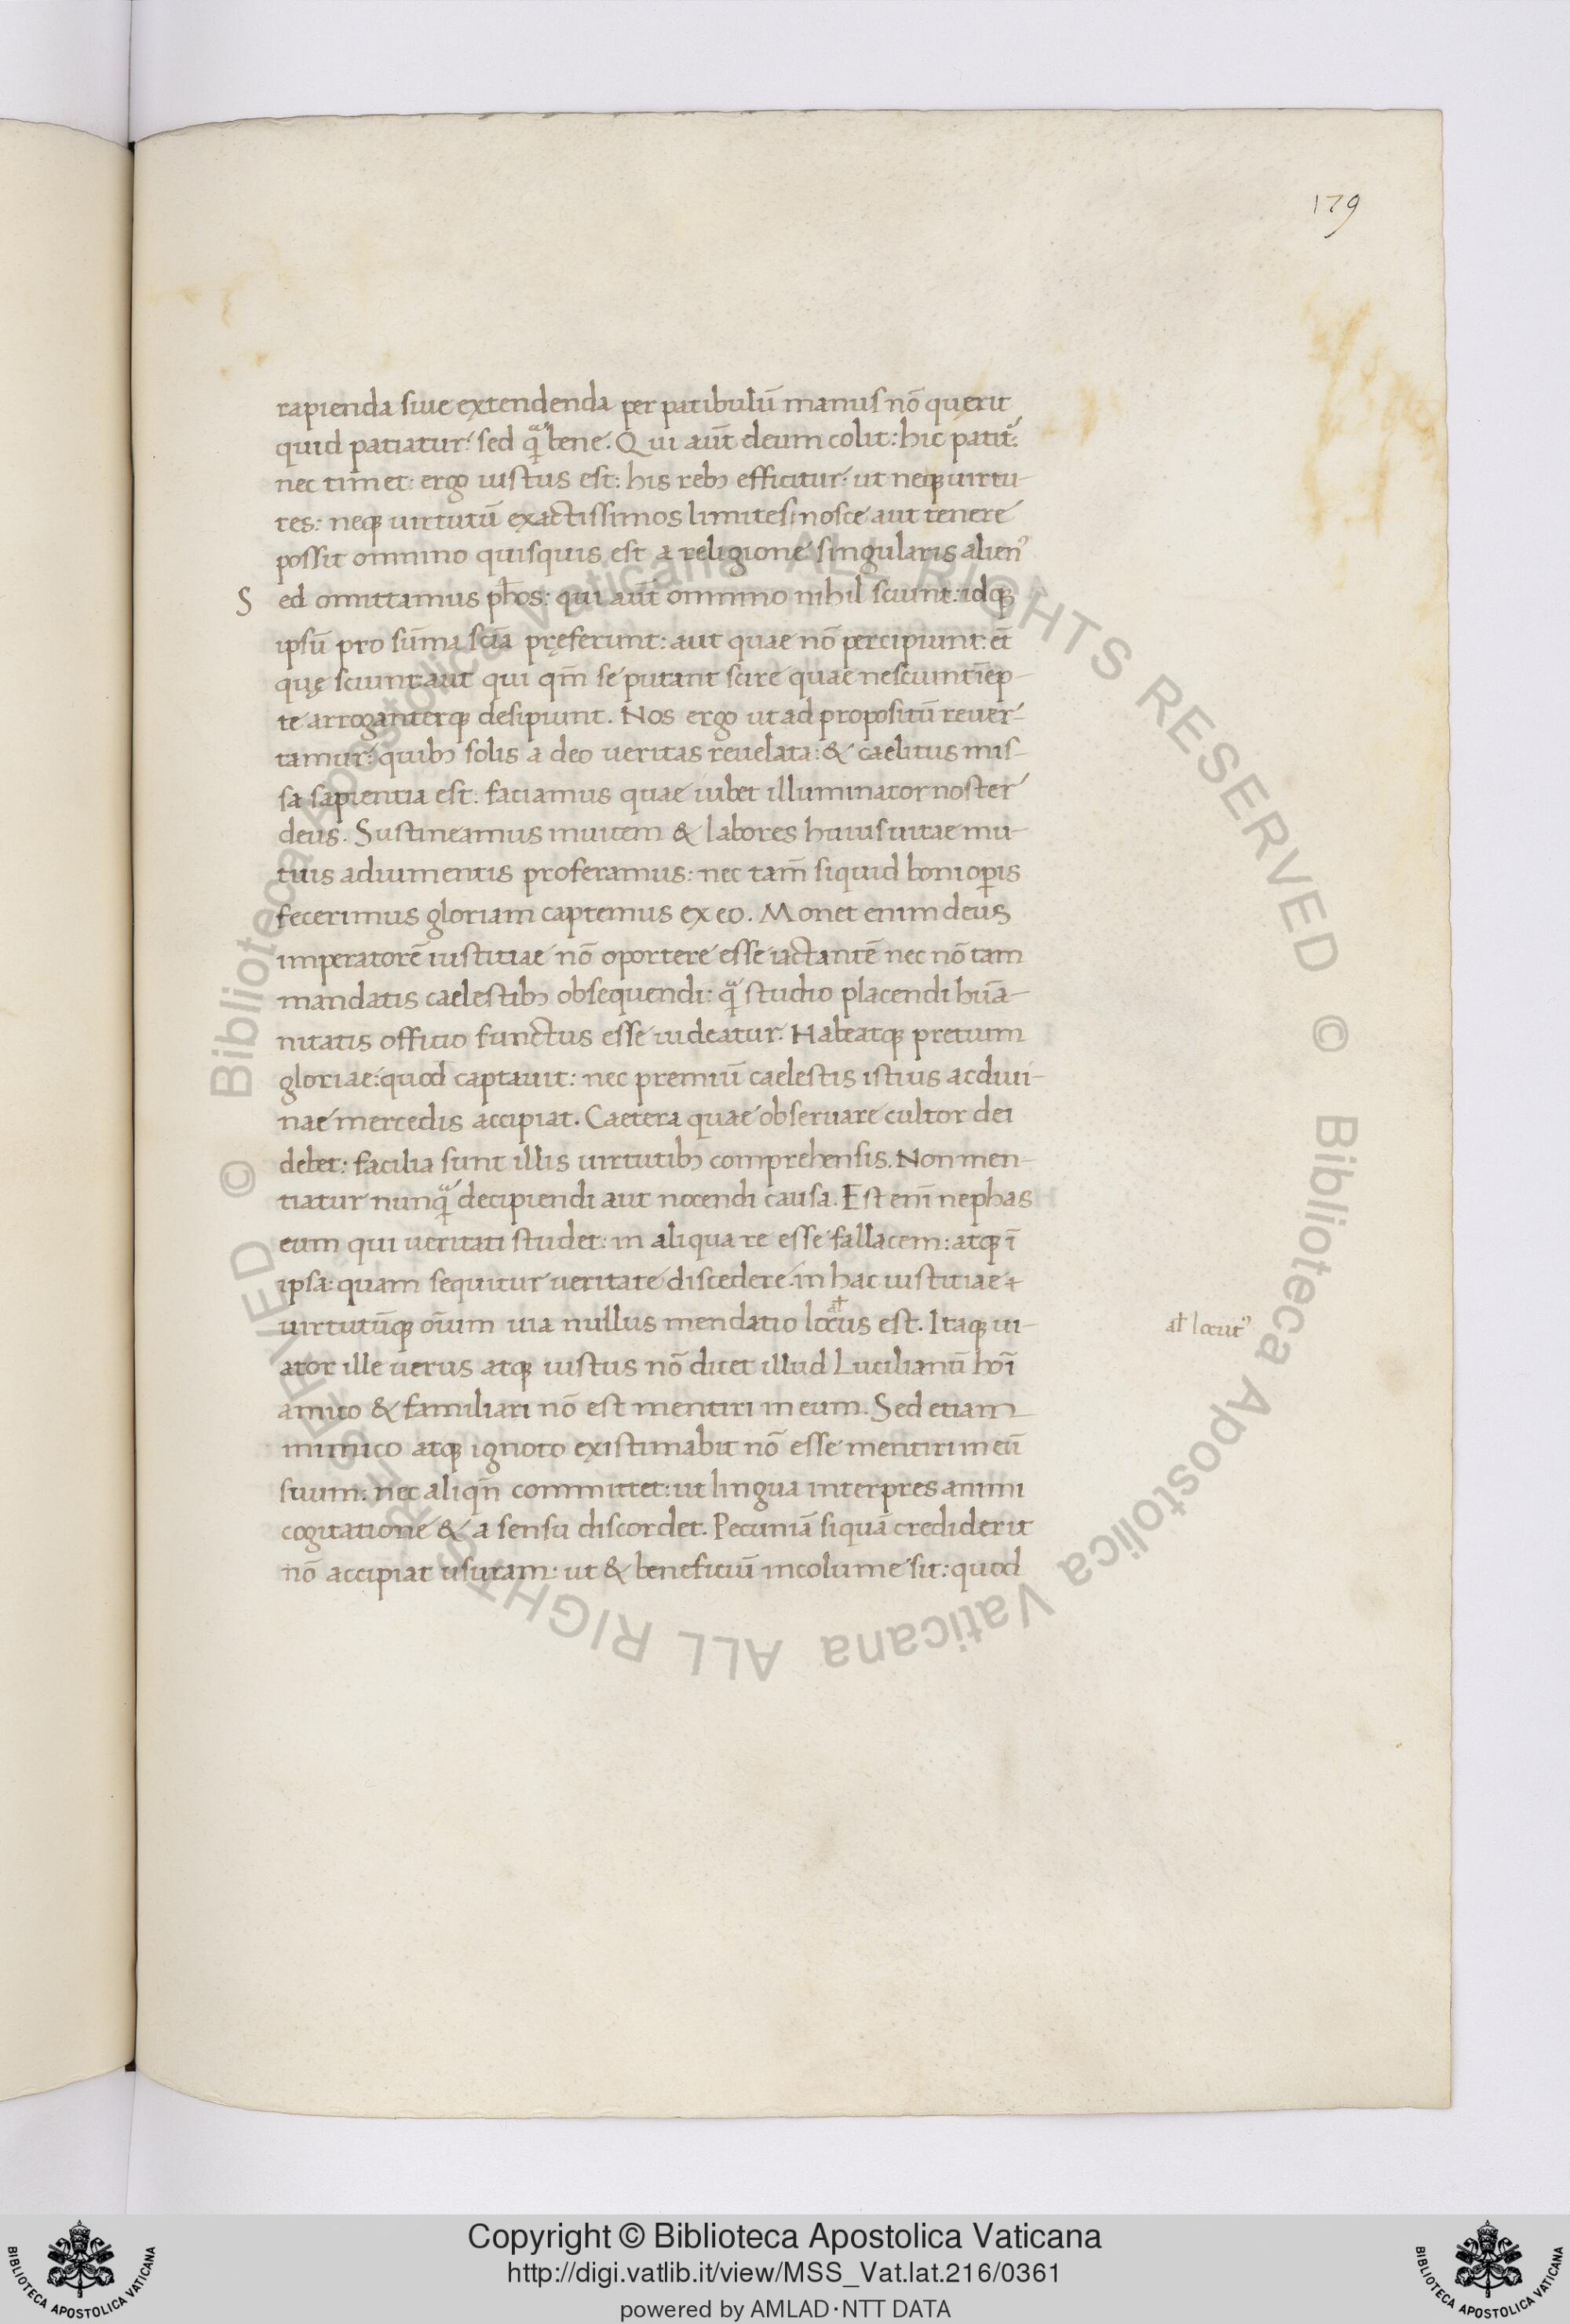 179
rapienda siue extendenda per patibulū manus nō querit
quid patiatur: sed q̄ᵃ bene. Qui aūt deum colit: hic patit᷒:
nec timet: ergo iustus est: his reb₃ efficitur: ut neq₃ uirtu-
tes: neq₃ uirtutū exactissimos limites nosce aut tenere
possit omnino quisquis est a religione singularis alienꝰ
Sed omittamus ph̄os: qui aūt omnino nihil sciunt: idq₃
ipsū pro sūma scīa pręferunt: aut quae nō percipiunt: et̄
quę sciunt: aut qui qm̄ se putant scire quae nesciunt īep-
te arroganterq₃ desipiunt. Nos ergo ut ad propositū reuer-
tamur: quib₃ solis a deo ueritas reuelata: & caelitus mis-
sa sapientia est: faciamus quae iubet illuminator noster
deus. Sustineamus inuicem & labores huius uitae mu-
tuis adiumentis proferamus: nec tam̄ siquid boni op̱is
fecerimus gloriam captemus ex eo. Monet enim deus
imperatorē iustitiae nō oportere esse iactantē nec nō tam
mandatis caelestib₃ obsequendi: q̄ᵃ studio placendi hūa-
nitatis officio functus esse uideatur. Habeatq₃ pretium
gloriae: quod captauit: nec premiū caelestis istius ac diui-
nae mercedis accipiat. Caetera quae obseruare cultor dei
debet: facilia sunt illis uirtutib₃ comprehensis. Non men-
tiatur nunq̄ᵃ decipiendi aut nocendi causa. Est enī nephas
eum qui ueritati studet: in aliqua re esse fallacem: atq₃ ī
ipsa: quam sequitur ueritate discedere. in hac iustitiae
uirtutūq₃ oīum uia nullus mendatio locus est. Itaq₃ ui-
al̄ locutꝰ
ator ille uerus atq₃ iustus nō dicet illud Lucilianū hoī
amico & familiari nō est mentiri meum. Sed etiam
inimico atq₃ ignoto existimabit nō esse mentiri meū
suum: nec aliqn̄ committet: ut lingua interpres animi
cogitatione & a sensu discordet. Pecuniā siquā crediderit
nō accipiat usuram: ut & beneficiū incolume sit: quod
© Biblioteca Apostolica Vaticana ALL RIGHTS RESERVED © Biblioteca Apostolica Vaticana ALL RIGHTS RESERVED
Copyright © Biblioteca Apostolica Vaticana
http://digi.vatlib.it/view/MSS_Vat.lat.216/0361
powered by AMLAD·NTT DATA
BIBLIOTECA APOSTOLICA VATICANA
BIBLIOTECA APOSTOLICA VATICANA